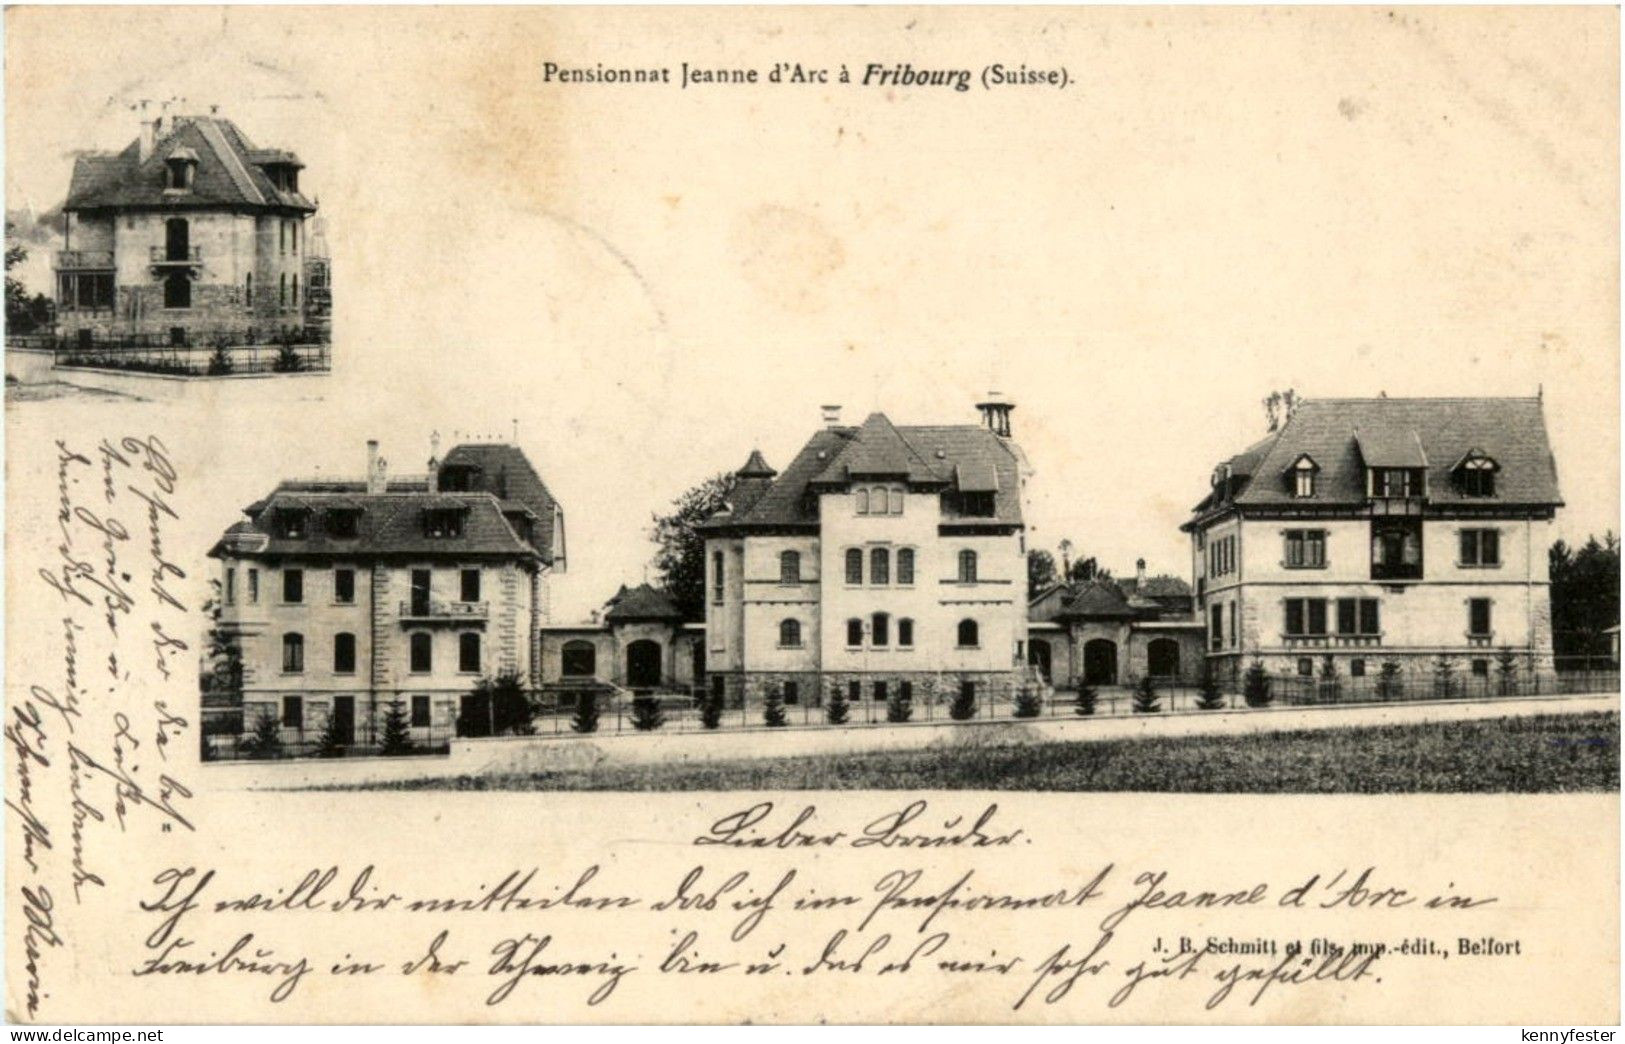 Pensionnat Jeanne d'Arc à Fribourg (Suisse).
Lieber Bruder.
Ich will dir mitteilen das ich im Pensionnat Jeanne d'Arc in
Freiburg in der Schweiz bin u. das es mir sehr gut gefällt.
J. B. Schmitt et fils, imp.-édit., Belfort
Es sendet dir die bes-
ten Grüße u. Küße
deine dich innig liebende
Schwester Maria
www.delcampe.net
kennyfester